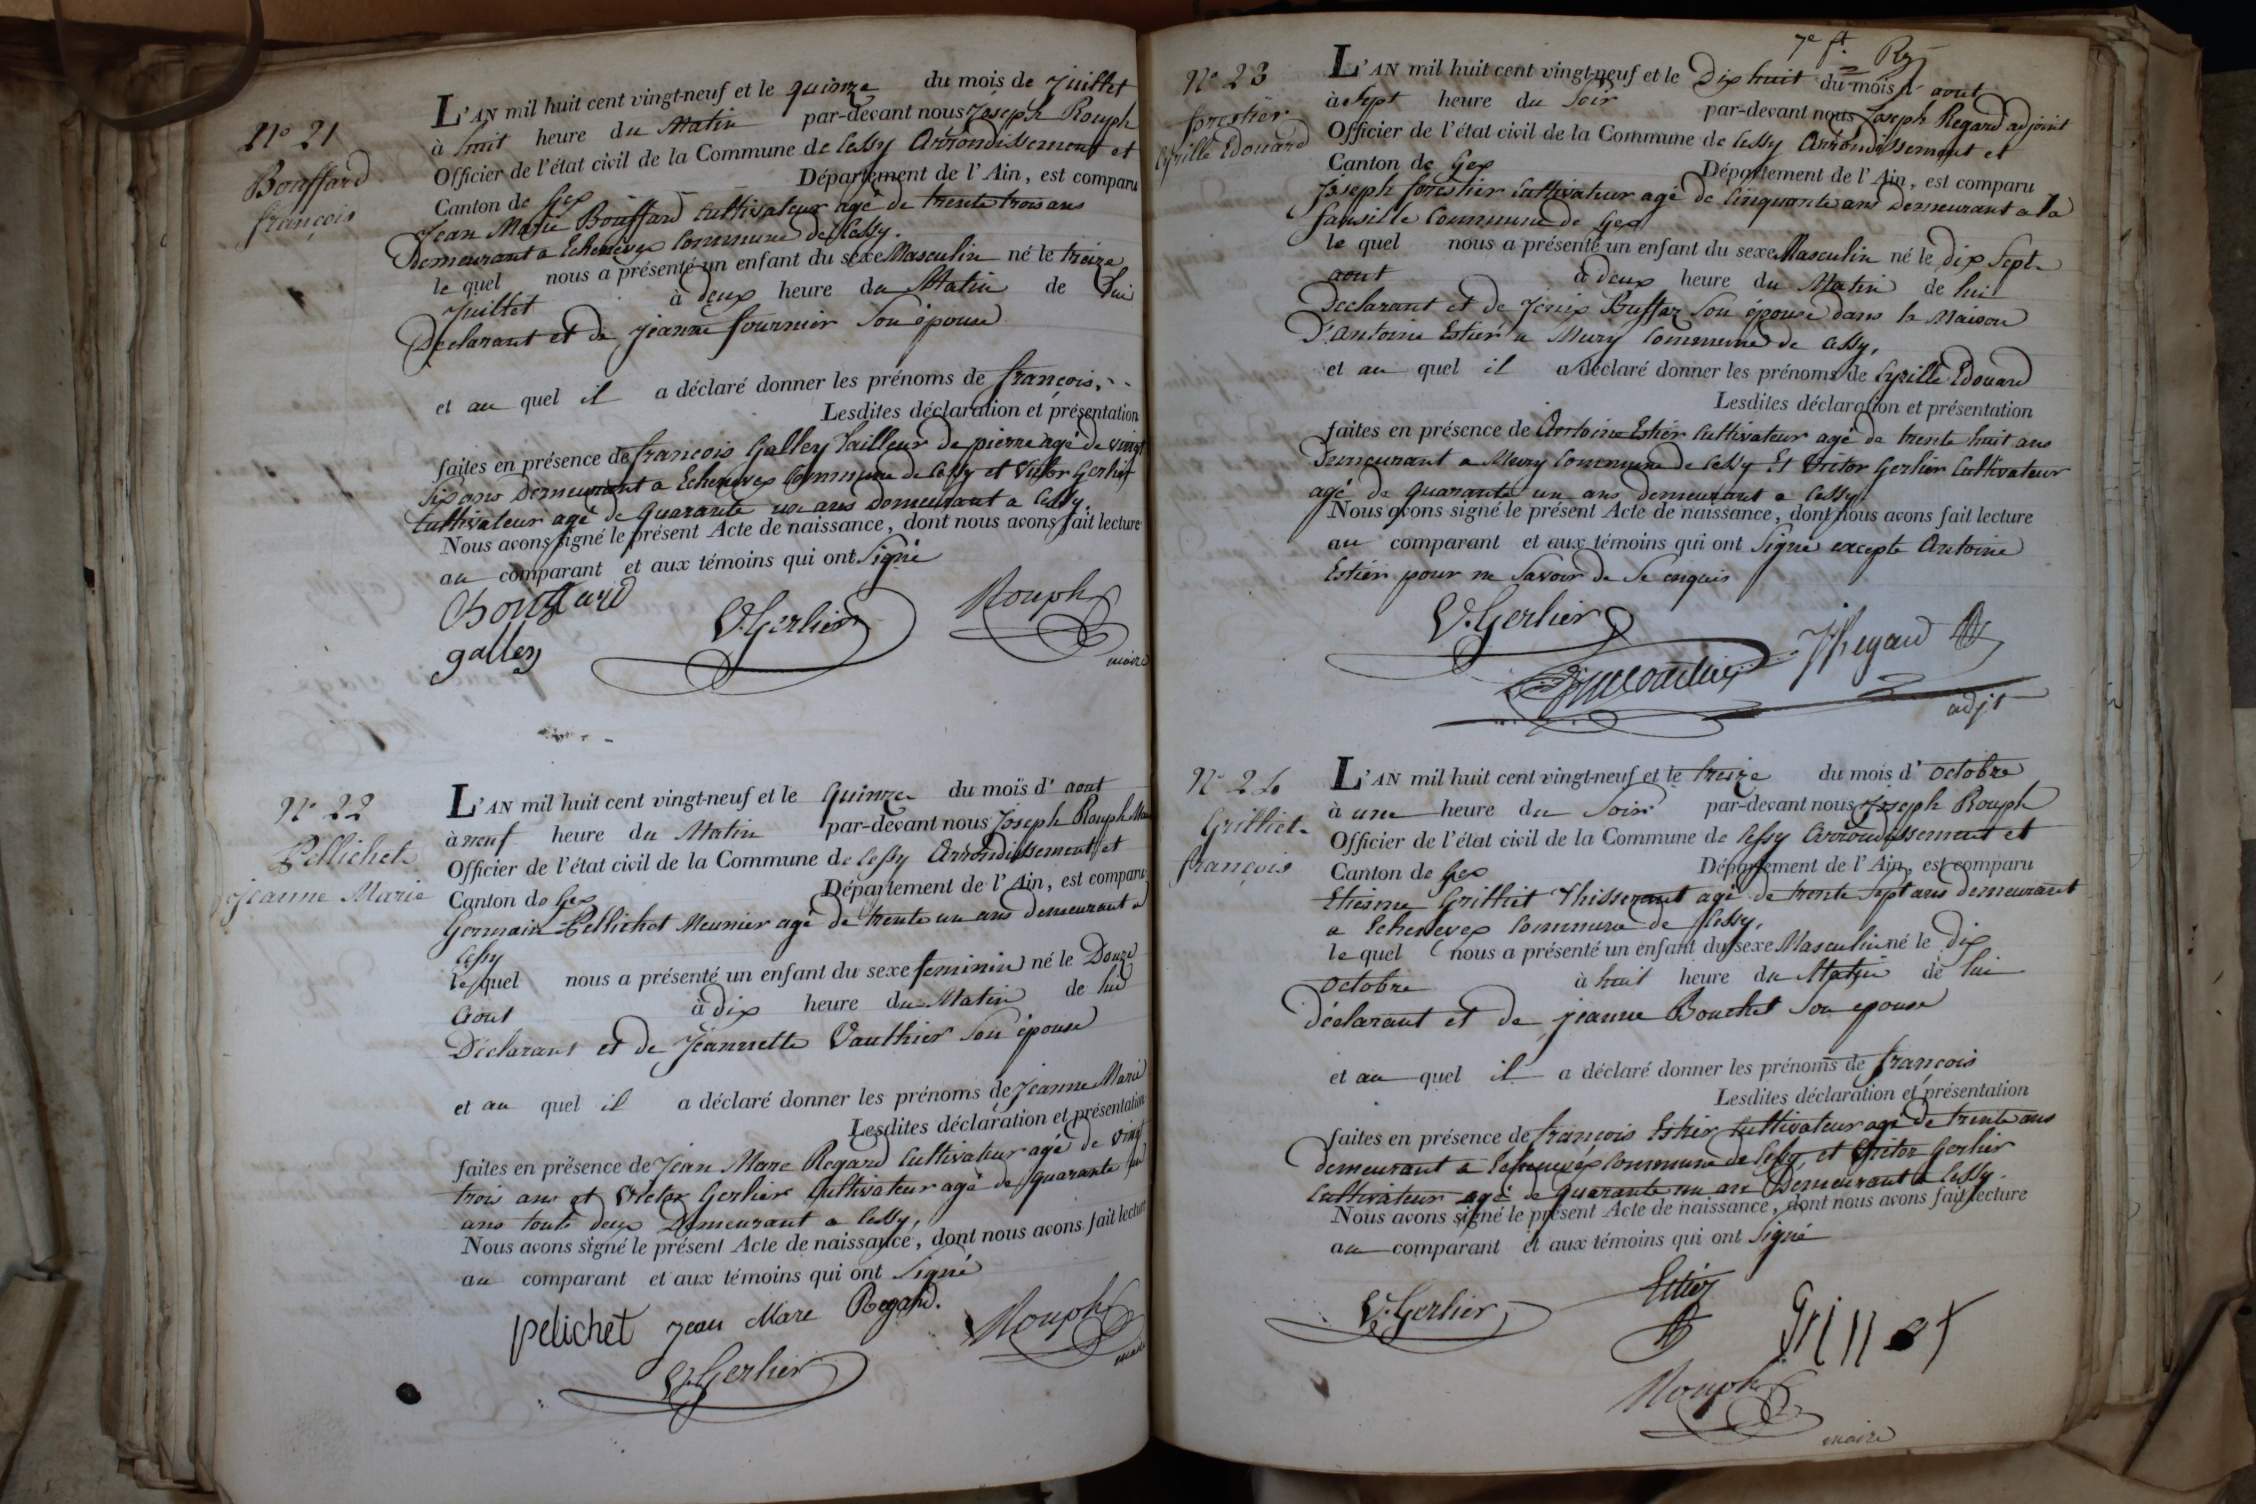 N° 21
Bouffard
françois
L'AN mil huit cent vingt-neuf et le quinze du mois de Juillet
à huit heure du Matin par-devant nous Joseph Rouph
Officier de l'état civil de la Commune de Cessy Arrondissement et
Canton de Gex Département de l'Ain, est comparu
Jean Marie Bouffard Cultivateur agé de trente trois ans
Demeurant a Echenevex Commune de Cessy.
le quel nous a présenté un enfant du sexe Masculin né le treize
Juillet à deux heure du Matin de lui
Declarant et de jeanne fournier Son épouse
et au quel il a déclaré donner les prénoms de françois,
Lesdites déclaration et présentation
faites en présence de francois Galley Tailleur de pierre agé de vingt
Six ans Demeurant a Echenevex Commune de Cessy et Victor Gerlier
Cultivateur agé de quarante un ans Demeurant a Cessy.
Nous avons signé le présent Acte de naissance, dont nous avons fait lecture
au comparant et aux témoins qui ont Signé
Bouffard
galley
V. Gerlier
Rouph
maire
N° 22
Pellichet
jeanne Marie
L'AN mil huit cent vingt-neuf et le Quinze du mois d' aout
à neuf heure du Matin par-devant nous Joseph Rouph Maire
Officier de l'état civil de la Commune de Cessy Arrondissement et
Canton de Gex Département de l'Ain, est comparu
Germain Pellichet Meunier agé de trente un ans demeurant a
Cessy
le quel nous a présenté un enfant du sexe feminin né le Douze
Aout à dix heure du Matin de lui
Déclarant et de Jeannette Vauthier Son épouse
et au quel il a déclaré donner les prénoms de Jeanne Marie
Lesdites déclaration et présentation
faites en présence de Jean Marc Regard Cultivateur agé de vingt
trois ans et Victor Gerlier Cultivateur agé de quarante un
ans touts deux Demeurant a Cessy,
Nous avons signé le présent Acte de naissance, dont nous avons fait lecture
au comparant et aux témoins qui ont Signé
pelichet jean Marc Regard.
V. Gerlier
Rouph
maire
7e ft.
N° 23
forestier
Cyrille Edouard
L'AN mil huit cent vingt-neuf et le Dix huit du mois d' aout
à Sept heure du Soir par-devant nous Joseph Regard adjoint
Officier de l'état civil de la Commune de Cessy Arrondissement et
Canton de Gex Département de l'Ain, est comparu
Joseph forestier Cultivateur agé de Cinquante ans Demeurant a la
faucille Commune de Gex
le quel nous a présenté un enfant du sexe Masculin né le dix Sept
aout à deux heure du Matin de lui
Declarant et de Buffar Son épouse dans la Maison
D'Antoine Estier a Mury Commune de Cessy,
et au quel il a déclaré donner les prénoms de Cyrille Edouard
Lesdites déclaration et présentation
faites en présence de Antoine Estier Cultivateur agé de trente huit ans
Demeurant a Mury Commune de Cessy Et Victor Gerlier Cultivateur
agé de quarante un ans demeurant a Cessy.
Nous avons signé le présent Acte de naissance, dont nous avons fait lecture
au comparant et aux témoins qui ont Signé excepte Antoine
Estier pour ne Savoir de Ce enquis
V. Gerlier
Jh Regard
adjt
N° 24
Grilliet
françois
L'AN mil huit cent vingt-neuf et le treize du mois d' octobre
à une heure du Soir par-devant nous Joseph Rouph
Officier de l'état civil de la Commune de Cessy Arrondissement et
Canton de Gex Département de l'Ain, est comparu
Etienne Grilliet Thisserant agé de trente Sept ans demeurant
a Echenevex Commune de Cessy,
le quel nous a présenté un enfant du sexe Masculin né le dix
octobre à huit heure du Matin de lui
déclarant et de jeanne Bouchet Son epouse
et au quel il a déclaré donner les prénoms de françois
Lesdites déclaration et présentation
faites en présence de françois Estier Cultivateur agé de trente ans
demeurant a Echenevéx Commune de Cessy, et Victor Gerlier
Cultivateur agé de quarante un an Demeurant a Cessy.
Nous avons signé le présent Acte de naissance, dont nous avons fait lecture
au comparant et aux témoins qui ont Signé
V. Gerlier
Estier
Grillet
Rouph
maire